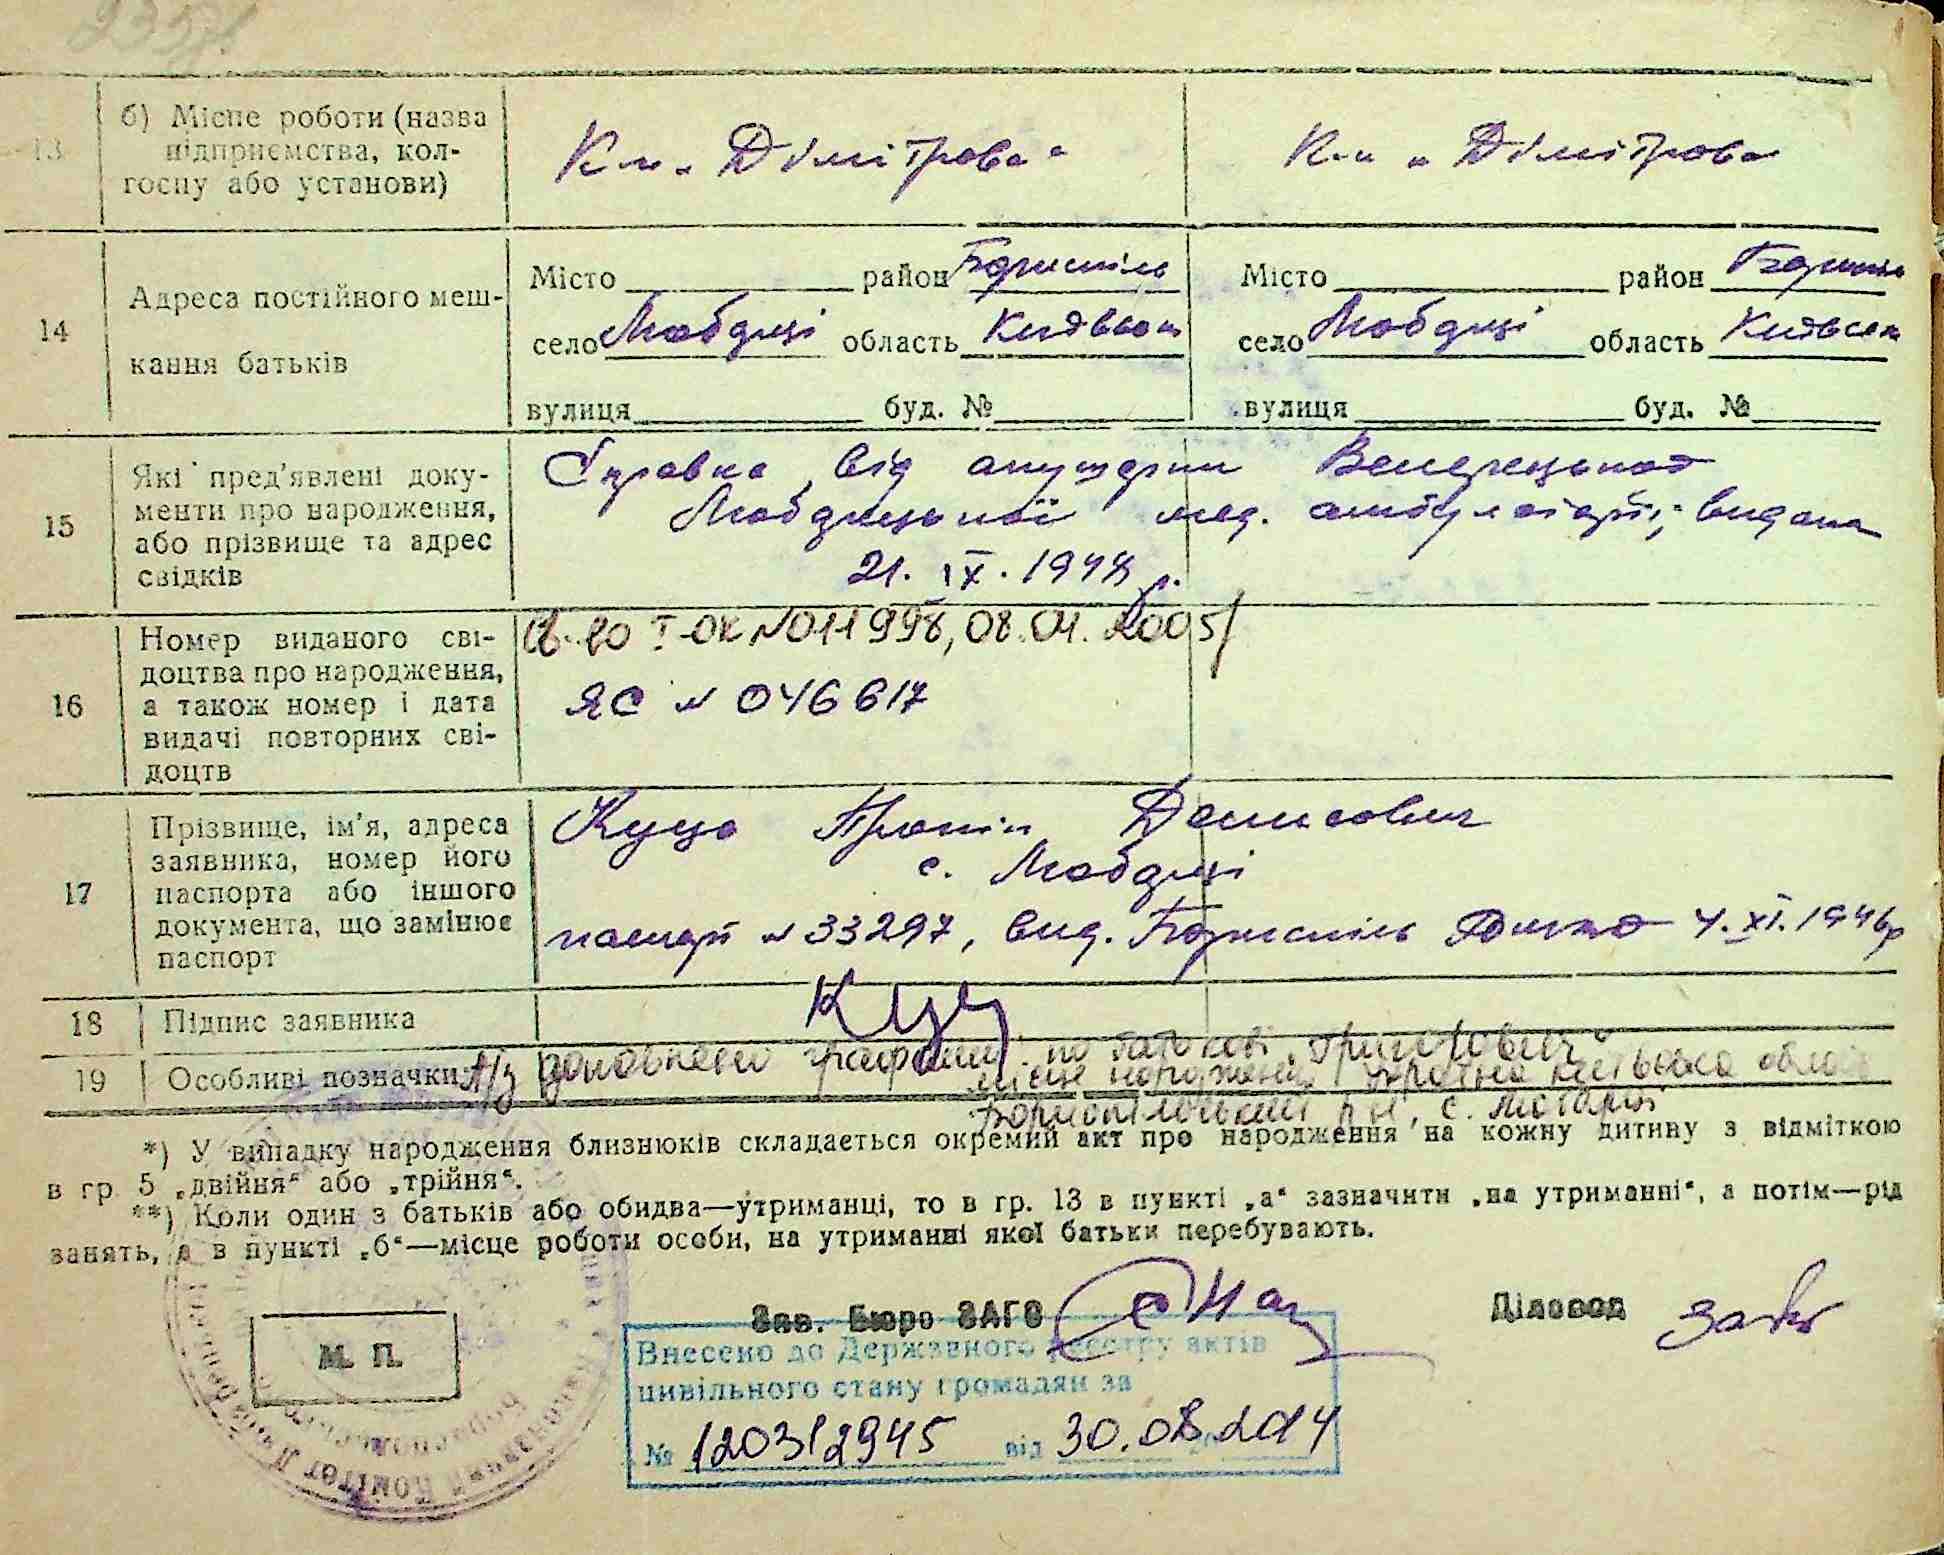 2357
13
б) Місце роботи (назва
підприємства, кол-
госпу або установи)
К-п „Дімітрова"
К-п „Дімітрова
14
Адреса постійного меш-
кання батьків
Місто район Бориспіль
село область Київськ
вулиця буд. №
Місто район
село область Київськ
вулиця буд. №
15
Які пред'явлені доку-
менти про народження,
або прізвище та адрес
свідків
Справка від акушерки
мед. амбулаторії, видана
21. IX. 1948 р.
16
Номер виданого сві-
доцтва про народження,
а також номер і дата
видачі повторних сві-
доцтв
Св-во I-ОК №011998, 08.04.2005
ЯС № 046617
17
Прізвище, ім'я, адреса
заявника, номер його
паспорта або іншого
документа, що замінює
паспорт
Куцо Денисович
с.
паспорт № 33297, вид. Бориспіль 4.XI.1946р
18
Підпис заявника
Куц
19
Особливі позначки
А/з доповнено графами: по батькові „Григорович"
місце народження Україна Київська область
Бориспільський р-н, с.
*) У випадку народження близнюків складається окремий акт про народження на кожну дитину з відміткою
в гр. 5 „двійня" або „трійня".
**) Коли один з батьків або обидва—утриманці, то в гр. 13 в пункті „а" зазначити „на утриманні", а потім—рід
занять, а в пункті „б"—місце роботи особи, на утриманні якої батьки перебувають.
Зав. Бюро ЗАГС
Діловод
М. П.
Внесено до Державного реєстру актів
цивільного стану громадян за
№ 120312945 від 30.08.2014